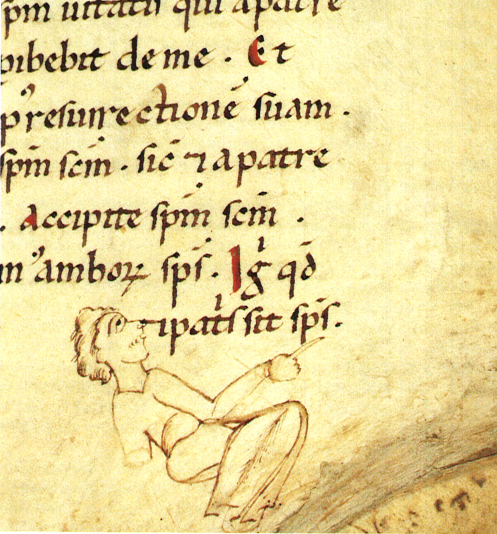 spm uitatis qui apatre
pibebit de me . Et
p'resurrectione suam .
spm scm . sic ⁊ apatre
. Accipite spm scm .
m 'amborꝝ sps . Ig qd
ipatssit sps .